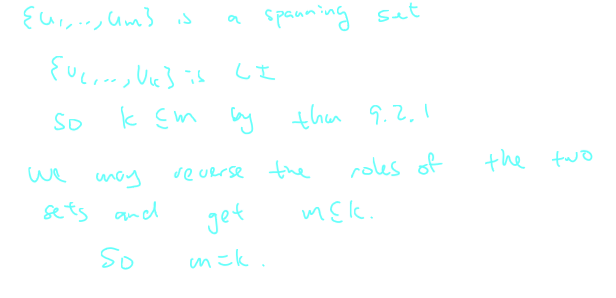 {u₁,...,um} is a spanning set
{v₁,...,vk} is LI
so k ≤ m by thm 9.2.1
we may reverse the roles of the two
sets and get m ≤ k.
so m = k.